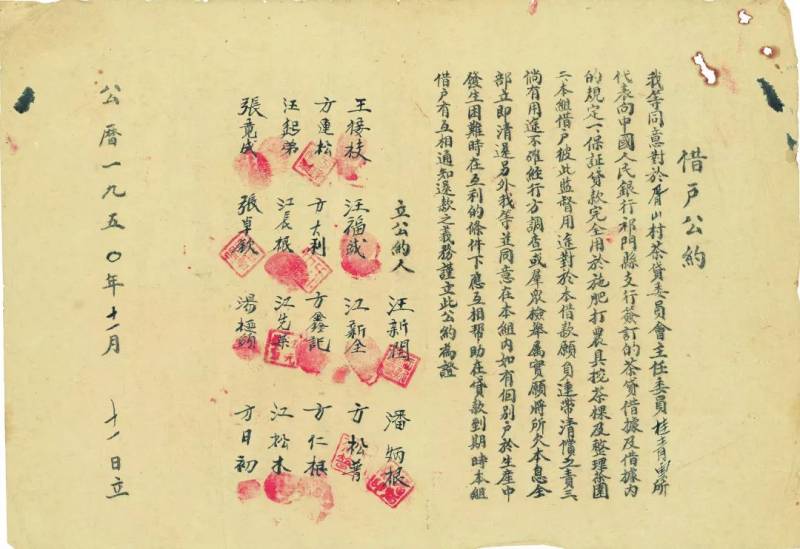 借戶公約
我等同意對於眉山村茶貸委員會主任委員桂青所
代表向中國人民銀行祁門縣支行簽訂的茶貸借據及借據内
的規定一、保証貸款完全用於施肥打農具挖茶棵及整理茶園
二、本組借戶彼此監督用途對於本借款願負連帶清償之責三、
倘有用途不確經行方調查或羣众檢舉属實願將所欠本息全
部立即清還另外我等並同意在本組内如有個别戶於生產中
發生困難時在互利的條件下應互相幇助在貸款到期時本組
借戶有互相通知還款之義務謹立此公約為證
立公約人 汪新潤 潘炳根
王樣枝 汪福成 江新全 方松善
方連松 方大利 方鑫記 方仁根
汪起弟 江長根 江先棠 江松木
張竟成 張卓欽 湯極頭 方日初
公曆一九五〇年十一月 十一日立